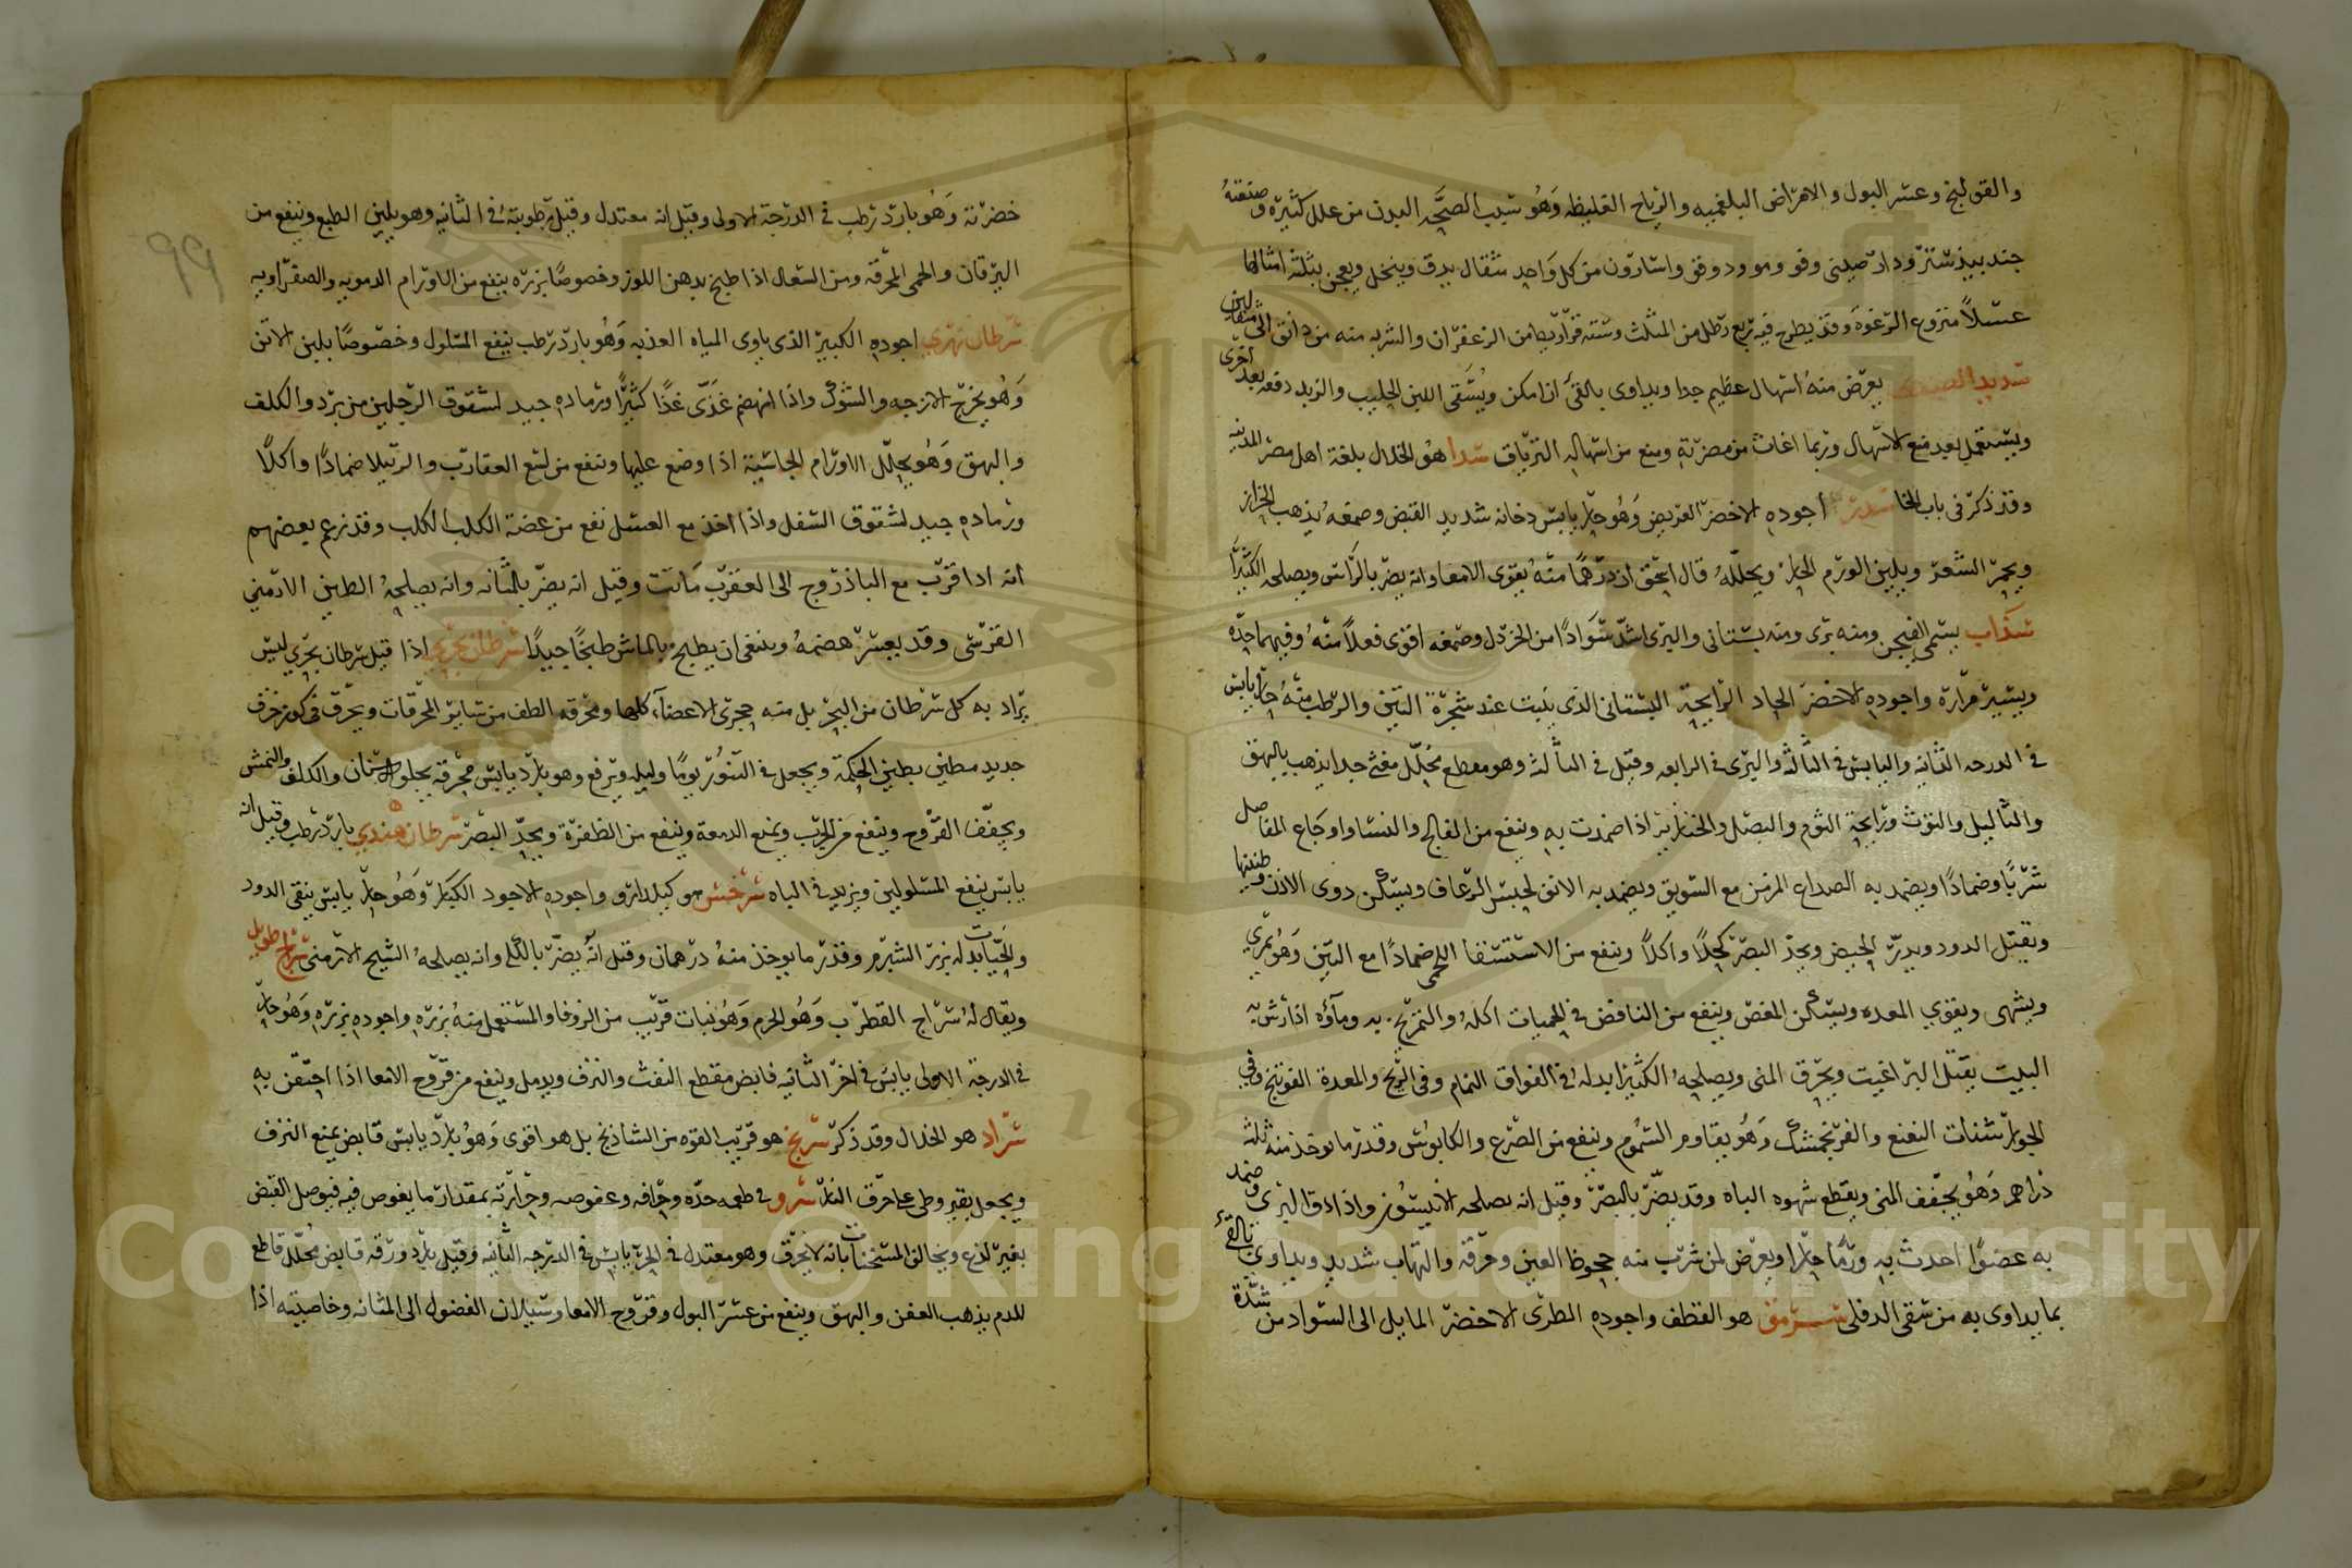 والقولنج وعسر البول والامراض البلغميه والرياح الغليظه وهو سبب الصحه البدن من علل كثيرة وصنعته
جندبيدستر ودار صيني وفو ومو ودوقو واسارون من كل واحد مثقال يدق وينخل ويعجن بثلثة امثالها
عسلاً منزوع الرغوه وقد يطرح فيه ربع رطل من المثلث وستة قراريط من الزعفران والشربه منه من دانق الى مثقالين
يعرض منه اسهال عظيم جدا ويداوى بالقئ ان امكن ويسقى اللبن الحليب والزبد دفعه بعد اخرى
ويستعمل بعد منع الاسهال وربما اغاث من مضرته ومنع من اسهاله الترياق سدا هو الخلال بلغة اهل مصر المدنيه
وقد ذكر في باب الخا سدر اجوده الاخضر العريض وهو حار يابس دخانه شديد القبض وصمغه يذهب الحزاز
ويحمر الشعر ويلين الورم الحار ويحلله قال اسحق ان درهما منه يقوى الامعا وانه يضر بالراس ويصلحه الكثيرا
سذاب يسمى الفيجن ومنه برى ومنه بستاني والبرى اشد سوادا من الخردل وصمغه اقوى فعلاً منه وفيهما حدة
ويسير مرارة واجوده الاخضر الحاد الرايحة البستاني الذي ينبت عند شجرة التين والرطب منه حار يابس
في الدرجه الثانيه واليابس في الثالثه والبرى في الرابعه وقيل في الثالثه وهو مقطع محلل مفتح جدا يذهب بالبهق
والثاليل والتوث ورايحة الثوم والبصل والخنازير اذا ضمدت به وينفع من الفالج والنسا واوجاع المفاصل
شربًا وضمادًا ويضمد به الصداع المزمن مع السويق ويضمد به الانف لحبس الرعاف ويسكن دوى الاذن وطنينها
ويقتل الدود ويدر الحيض ويحد البصر كحلاً واكلاً وينفع من الاستسقا اللحمى ضمادًا مع التين وهو يمرى
ويشهى ويقوي المعده ويسكن المغص وينفع من النافض في الحميات اكله والتمريخ به وماؤه اذا رش به
البيت يقتل البراغيت ويحرق المنى ويصلحه الكثيرا بدله في الفواق النمام وفى الريح والمعدة الفوتنج وفي
الجوارشنات النعنع والفرنجمشك وهو يقاوم السموم وينفع من الصرع والكابوس وقدر ما يوخذ منه ثلثه
دراهم وهو يجفف المنى ويقطع شهوه الباه وقد يضر بالبصر وقيل انه يصلحه الانيسون واذا دق البرى وضمد
به عضوًا احدث به ورمًا حارا ويعرض لمن شرب منه جحوظ العين وحرقه والتهاب شديد ويداوى بالقئ
بما يداوى به من سقى الدفلى سرمق هو القطف واجوده الطرى الاخضر المايل الى السواد من شدة
99
خضرته وهو بارد رطب في الدرجة الاولى وقيل انه معتدل وقيل رطوبته في الثانيه وهو يلين الطبع وينفع من
اليرقان والحمى المحرقه ومن السعال اذا طبخ بدهن اللوز وخصوصًا بزره ينفع من الاورام الدمويه والصفراويه
سرطان نهري اجوده الكبير الذي ياوى المياه العذبه وهو بارد رطب ينفع المسلول وخصوصًا بلبن الاتن
وهو يخرج الازجه والشوك واذا انهضم غذى غذًا كثيرًا ورماده جيد لشقوق الرجلين من برد والكلف
والبهق وهو يحلل الاورام الجاسيه اذا وضع عليها وينفع من لسع العقارب والرتيلا ضمادًا واكلًا
ورماده جيد لشقوق السفل واذا اخذ مع العسل نفع من عضة الكلب الكلب وقد زعم بعضهم
انه اذا قرب مع الباذروج الى العقرب ماتت وقيل انه يضر بالمثانه وانه يصلحه الطين الارمني
القرشى وقد يعسر هضمه وينبغي ان يطبخ بالماش طبخًا جيدًا سرطان بحري اذا قيل سرطان بحري ليس
يراد به كل سرطان من البحر بل منه حجرى الاعضا كلها ومحرقه الطف من ساير المحرقات ويحرق في كوز خزف
جديد مطين بطين الحكمة ويجعل في التنور يومًا وليله ويرفع وهو بارد يابس محرقه يجلو الاسنان والكلف والنمش
ويجفف القروح وينفع من الجرب ويمنع الدمعة وينفع من الظفرة ويحد البصر سرطان هندي بارد رطب وقيل انه
يابس ينفع المسلولين ويزيد في الباه سرخس هو كيلدارو واجوده الاجود الكبار وهو حار يابس ينقى الدود
والحيات بدله بزر الشبرم وقدر ما يوخذ منه درهمان وقيل انه يضر بالكلى وانه يصلحه الشيح الارمنى سراج طويل
ويقال له سراج القطرب وهو الخرم وهو نبات قريب من الزوفا والمستعمل منه بزره واجوده بزره وهو حار
في الدرجة الاولى يابس في اخر الثانيه قابض مقطع النفث والنزف ويدمل وينفع من قروح الامعا اذا احتقن به
سراد هو الخلال وقد ذكر سرنج هو قريب القوه من الشاذنج بل هو اقوى وهو بارد يابس قابض يمنع النزف
ويجعل بقيروطى على حرق النار سرو في طعمه حده وحرافه وعفوصه وحرارته بمقدار ما يغوص فيه فيوصل القبض
بغير لذع ويخالف المسخنات بانه لا يحرق وهو معتدل في الحر يابس في الدرجه الثانيه وقيل بارد ورقه قابض محلل قاطع
للدم يذهب العفن والبهق وينفع من عسر البول وقروح الامعا وسيلان الفضول الى المثانه وخاصيته اذا
Copyright © King Saud University